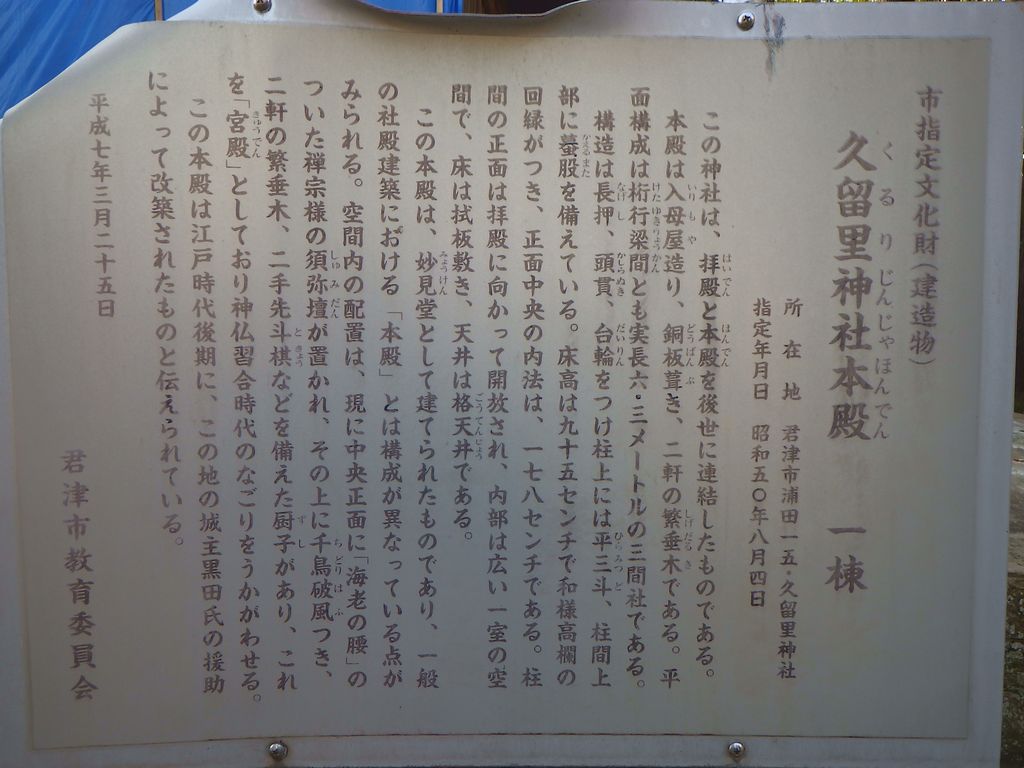 市指定文化財(建造物)
久留里神社本殿 一棟
所在地 君津市浦田一五・久留里神社
指定年月日 昭和五〇年八月四日
この神社は、拝殿と本殿を後世に連結したものである。
本殿は入母屋造り、銅板葺き、二軒の繁垂木である。平
面構成は桁行梁間とも実長六・三メートルの三間社である。
構造は長押、頭貫、台輪をつけ柱上には平三斗、柱間上
部に蟇股を備えている。床高は九十五センチで和様高欄の
回縁がつき、正面中央の内法は、一七八センチである。柱
間の正面は拝殿に向かって開放され、内部は広い一室の空
間で、床は拭板敷き、天井は格天井である。
この本殿は、妙見堂として建てられたものであり、一般
の社殿建築における「本殿」とは構成が異なっている点が
みられる。空間内の配置は、現に中央正面に「海老の腰」の
ついた禅宗様の須弥壇が置かれ、その上に千鳥破風つき、
二軒の繁垂木、二手先斗栱などを備えた厨子があり、これ
を「宮殿」としており神仏習合時代のなごりをうかがわせる。
この本殿は江戸時代後期に、この地の城主黒田氏の援助
によって改築されたものと伝えられている。
平成七年三月二十五日
君津市教育委員会